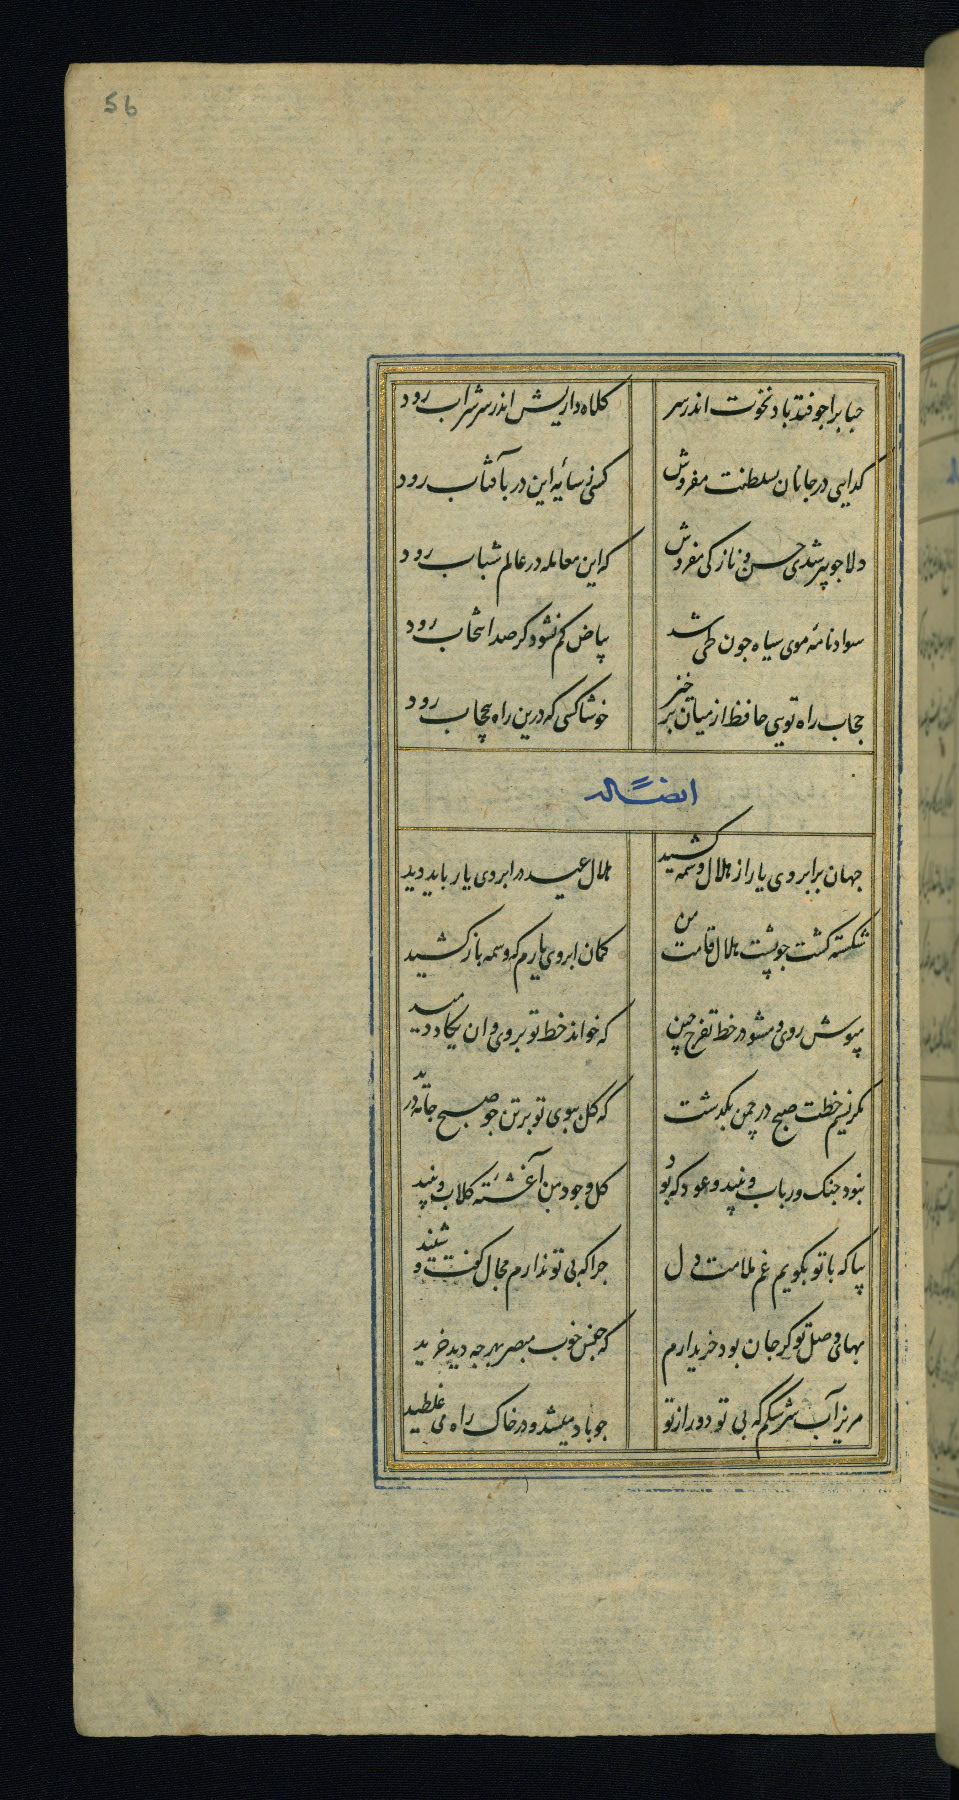 56
حباب را جو فتد باد نخوت اندر سر کلاه داریش اندر سر شراب رود
کدایی در جانان بسلطنت مفروش کسی ز سایهٔ این در بآفتاب رود
دلا جو پیر شدی حسن و نازکی مفروش که این معامله در عالم شباب رود
سواد نامهٔ موی سیاه جون طی شد بیاض کم نشود کر صد انتخاب رود
حجاب راه تویی حافظ از میان برخیز خوشا کسی که درین راه بیحجاب رود
ایضاً له
جهان بر ابروی یار از هلال وسمه کشید هلال عید در ابروی یار باید دید
شکسته کشت جو پشت هلال قامت من کمان ابروی یارم که وسمه باز کشید
مپوش روی و مشو در خط تفرج که خواند خط تو بر وی و ان یکاد دمید
مکر نسیم خطت صبح در چمن بکذشت که کل ببوی تو بر تن جو صبح جامه درید
نبود جنک و رباب و نبید و عود که بود کل وجود من آغشتهٔ کلاب و نبید
بیا که با تو بکویم غم ملامت دل جرا که بی تو ندارم مجال کفت و شنید
بهای وصل تو کر جان بود خریدارم که جنس خوب مبصر بهر جه دید خرید
مریز آب سرشکم که بی تو دور از تو جو باد میشد و در خاک راه می غلطید